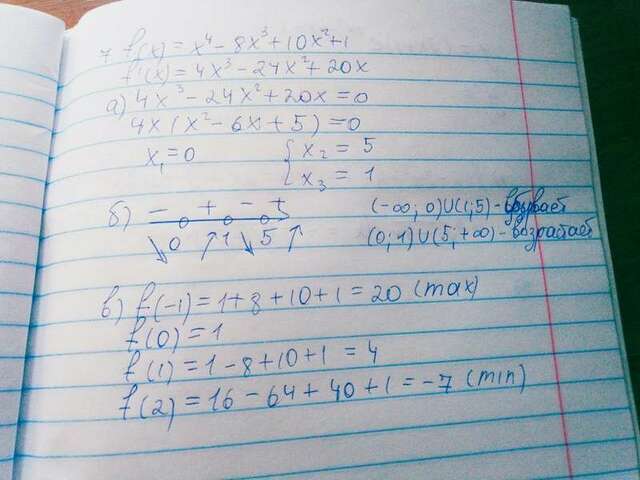 7. f(x) = x⁴ - 8x³ + 10x² + 1
f'(x) = 4x³ - 24x² + 20x
а) 4x³ - 24x² + 20x = 0
4x(x² - 6x + 5) = 0
x₁ = 0 { x₂ = 5
x₃ = 1
б) - + - + (-∞; 0)∪(1; 5) - убывает
↘ 0 ↗ 1 ↘ 5 ↗ (0; 1)∪(5; +∞) - возрастает
в) f(-1) = 1 + 8 + 10 + 1 = 20 (max)
f(0) = 1
f(1) = 1 - 8 + 10 + 1 = 4
f(2) = 16 - 64 + 40 + 1 = -7 (min)